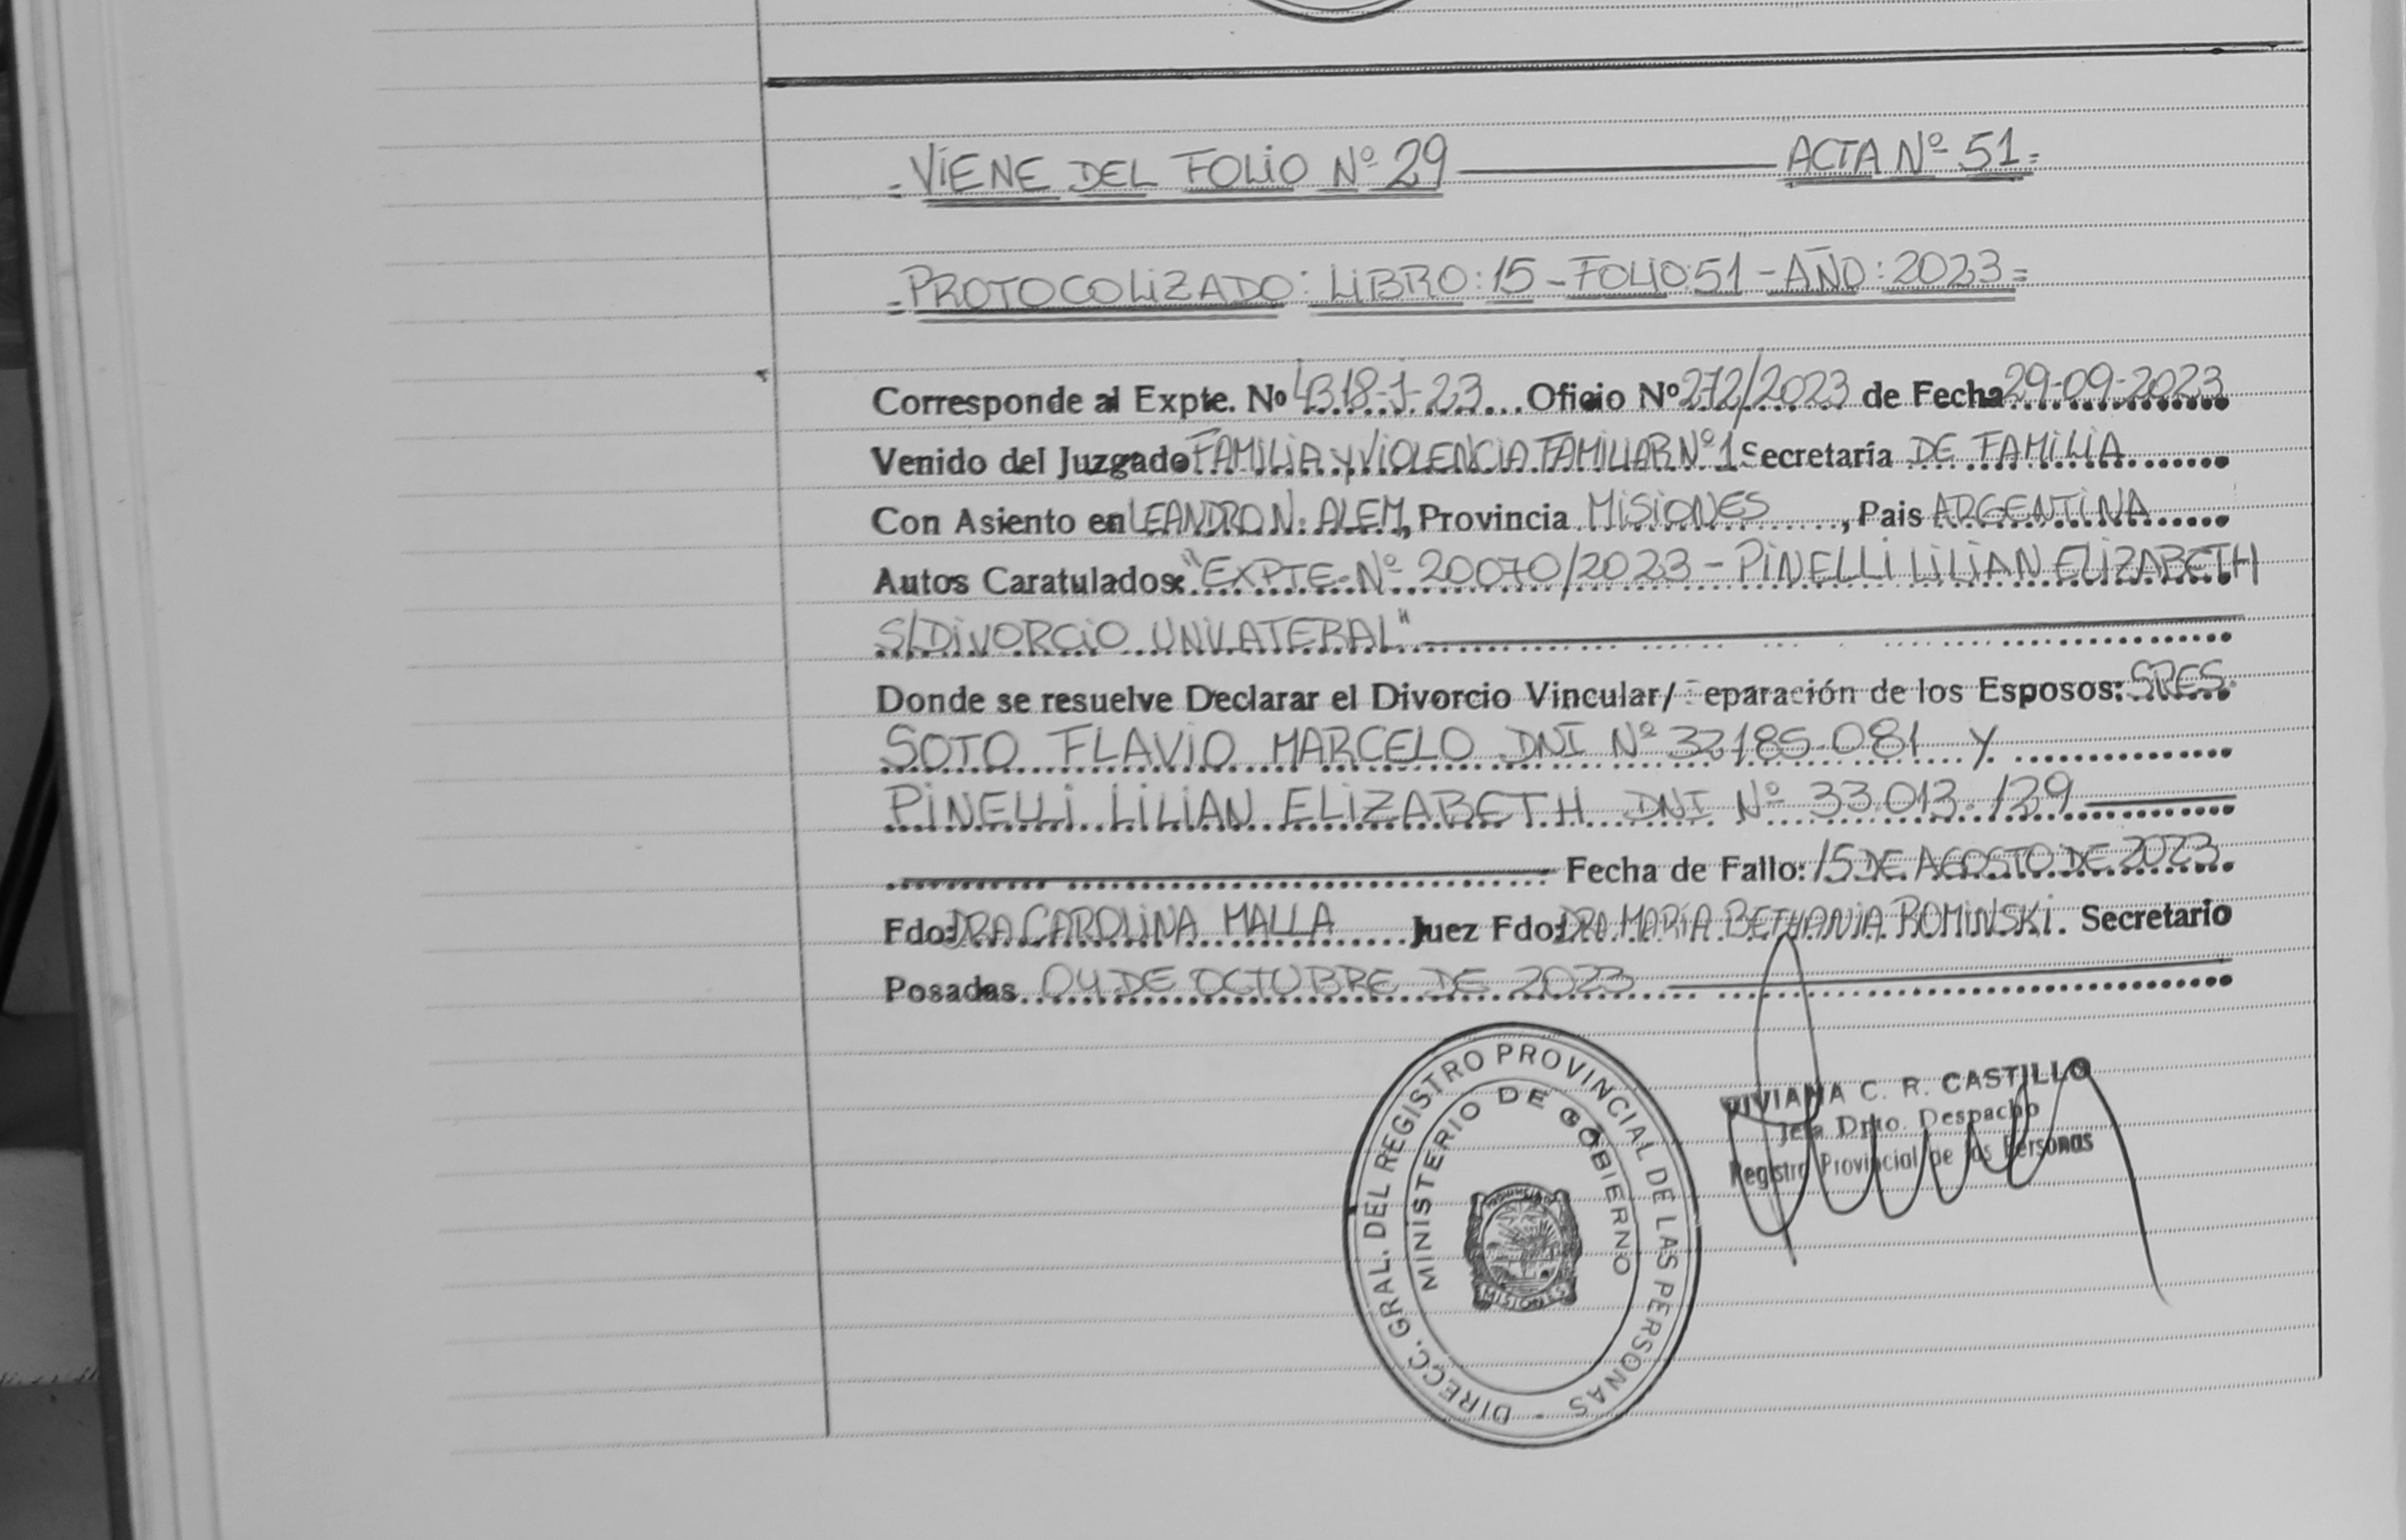 = VIENE DEL FOLIO Nº 29 ——— ACTA Nº 51 =
= PROTOCOLIZADO: LIBRO: 15 - FOLIO: 51 - AÑO: 2023 =
Corresponde al Expte. Nº 4318-J-23 Oficio Nº 272/2023 de Fecha 29-09-2023
Venido del Juzgado FAMILIA Y VIOLENCIA FAMILIAR Nº 1 Secretaría DE FAMILIA
Con Asiento en LEANDRO N. ALEM, Provincia MISIONES, Pais ARGENTINA
Autos Caratulados: "EXPTE. Nº 20070/2023 - PINELLI LILIAN ELIZABETH
S/DIVORCIO UNILATERAL"
Donde se resuelve Declarar el Divorcio Vincular/Separación de los Esposos: SRES.
SOTO FLAVIO MARCELO DNI Nº 32.185.081 Y
PINELLI LILIAN ELIZABETH DNI Nº 33.013.129
Fecha de Fallo: 15 DE AGOSTO DE 2023
Fdo: DRA CAROLINA MALLA Juez Fdo: DRA MARÍA BETHANIA ROMINSKI. Secretario
Posadas 04 DE OCTUBRE DE 2023
DIRECC. GRAL. DEL REGISTRO PROVINCIAL DE LAS PERSONAS -
MINISTERIO DE GOBIERNO
MISIONES
VIVIANA C. R. CASTILLO
Jefa Dpto. Despacho
Registro Provincial de las Personas